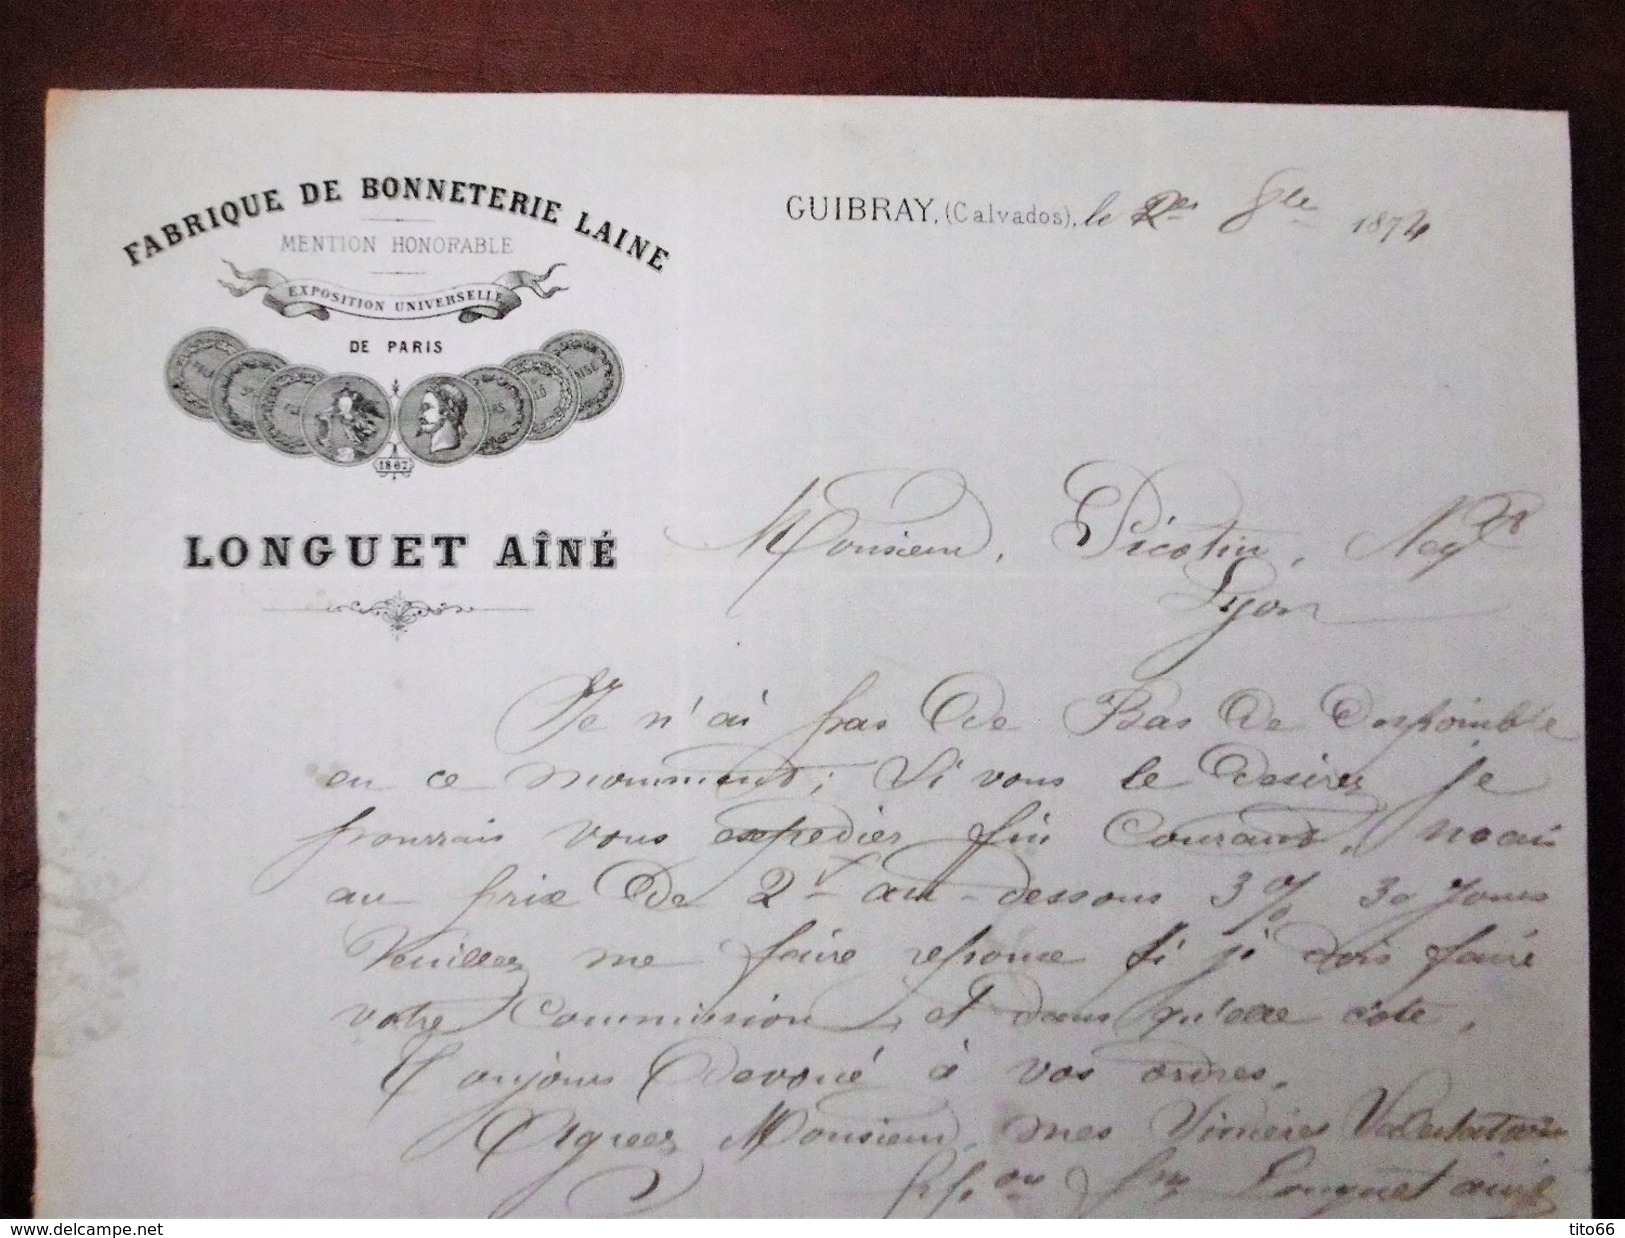 FABRIQUE DE BONNETERIE LAINE
MENTION HONORABLE
EXPOSITION UNIVERSELLE
DE PARIS
1867
LONGUET AÎNÉ
GUIBRAY, (Calvados), le 2 8bre 1874
Monsieur, Picotin, Negt
Lyon
Je n'ai pas de Bas de disponible
en ce momment; Si vous le desirez je
pourrais vous expedier fin Courant, mais
au prix de 2f au-dessous 3% 30 Jours
Veuillez me faire reponse si je dois faire
votre Commission, et dans qu'elle côte,
Toujours devoué à vos ordres,
Agreez Monsieur, mes Sincères Salutations
Longuet ainé
delcampe.net
tito66